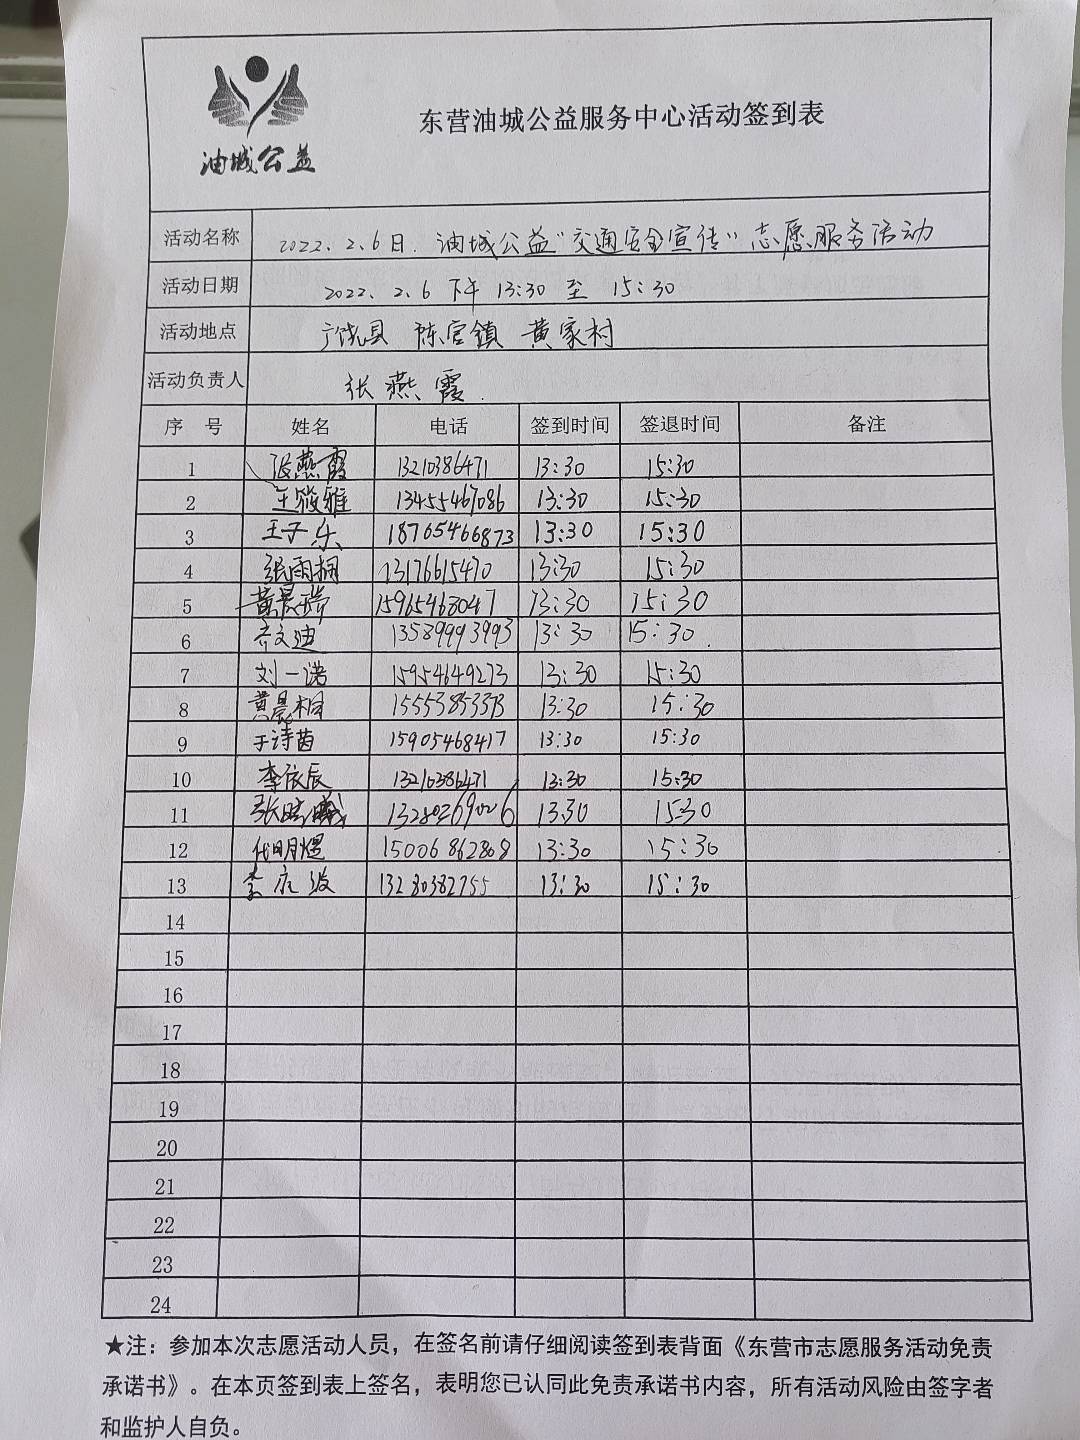 东营油城公益服务中心活动签到表
油城公益
活动名称 2022、2、6日、油城公益"交通安全宣传"志愿服务活动
活动日期 2022、2、6 下午 13:30 至 15:30
活动地点 广饶县 陈官镇 黄家村
活动负责人 张燕霞
序 号 姓名 电话 签到时间 签退时间 备注
1 张燕霞 13210386471 13:30 15:30
2 王筱雅 13455467086 13:30 15:30
3 王子乐 18765466873 13:30 15:30
4 张雨桐 13176615470 13:30 15:30
5 黄晨瑞 15965468047 13:30 15:30
6 齐文迪 13589993993 13:30 15:30
7 刘一诺 15954649273 13:30 15:30
8 黄晨桐 15553853373 13:30 15:30
9 于诗茵 15905468417 13:30 15:30
10 李依辰 13210386471 13:30 15:30
11 13:30 15:30
12 代明煜 15006862808 13:30 15:30
13 13280382755 13:30 15:30
14
15
16
17
18
19
20
21
22
23
24
★注：参加本次志愿活动人员，在签名前请仔细阅读签到表背面《东营市志愿服务活动免责
承诺书》。在本页签到表上签名，表明您已认同此免责承诺书内容，所有活动风险由签字者
和监护人自负。